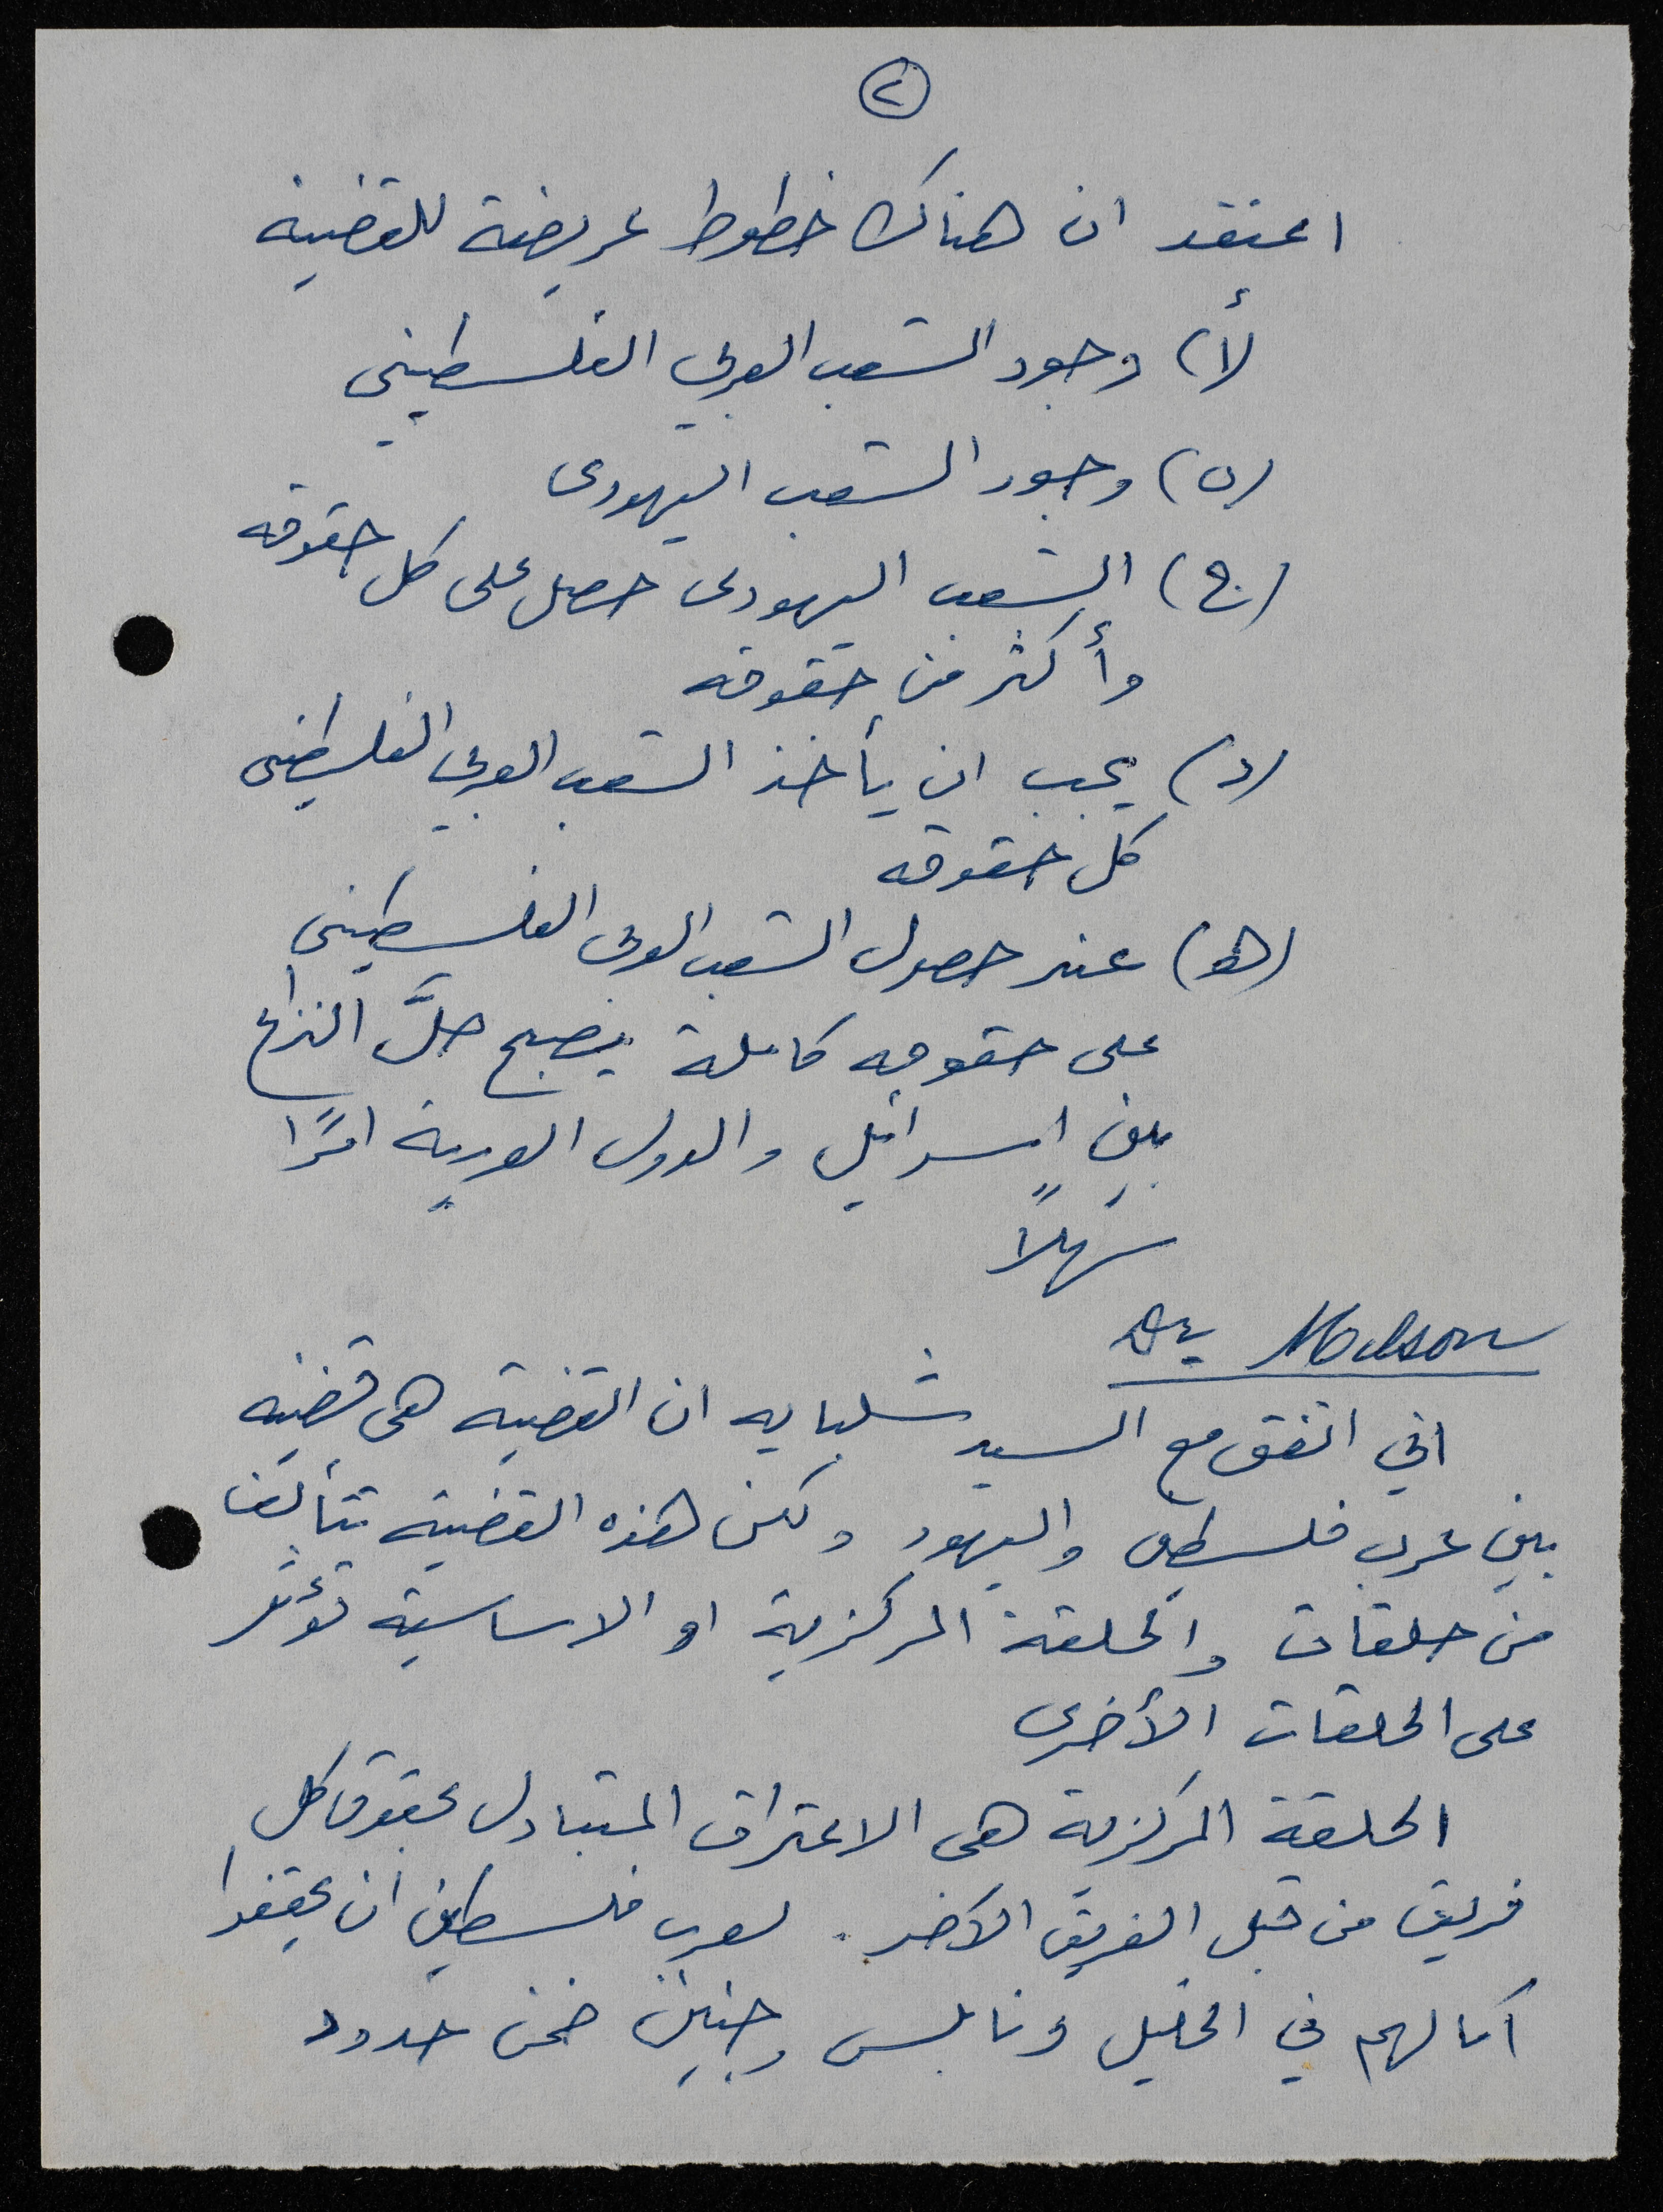 ٢
اعتقد ان هناك خطوط عريضة للقضية
(أ) وجود الشعب العربي الفلسطيني
(ب) وجود الشعب اليهودى
(ج) الشعب اليهودى حصل على كل حقوقه
وأكثر من حقوقه
(د) يجب ان يأخذ الشعب العربي الفلسطينى
كل حقوقه
(هـ) عند حصول الشعب العربى الفلسطينى
على حقوقه كاملة يصبح حلَّ النزاع
بين اسرائيل والدول العربية امرًا
سهلاً
Dr Milson
اني اتفق مع السيد شلبايه ان القضية هى قضية
بين عرب فلسطين واليهود ولكن هذه القضية تتألف
من حلقات والحلقة المركزية او الاساسية تؤثر
على الحلقات الأخرى
الحلقة المركزية هى الاعتراف المتبادل بحقوق كل
فريق من قبل الفريق الآخر. لعرب فلسطين ان يحققوا
آمالهم في الخليل ونابلس وجنين ضمن حدود